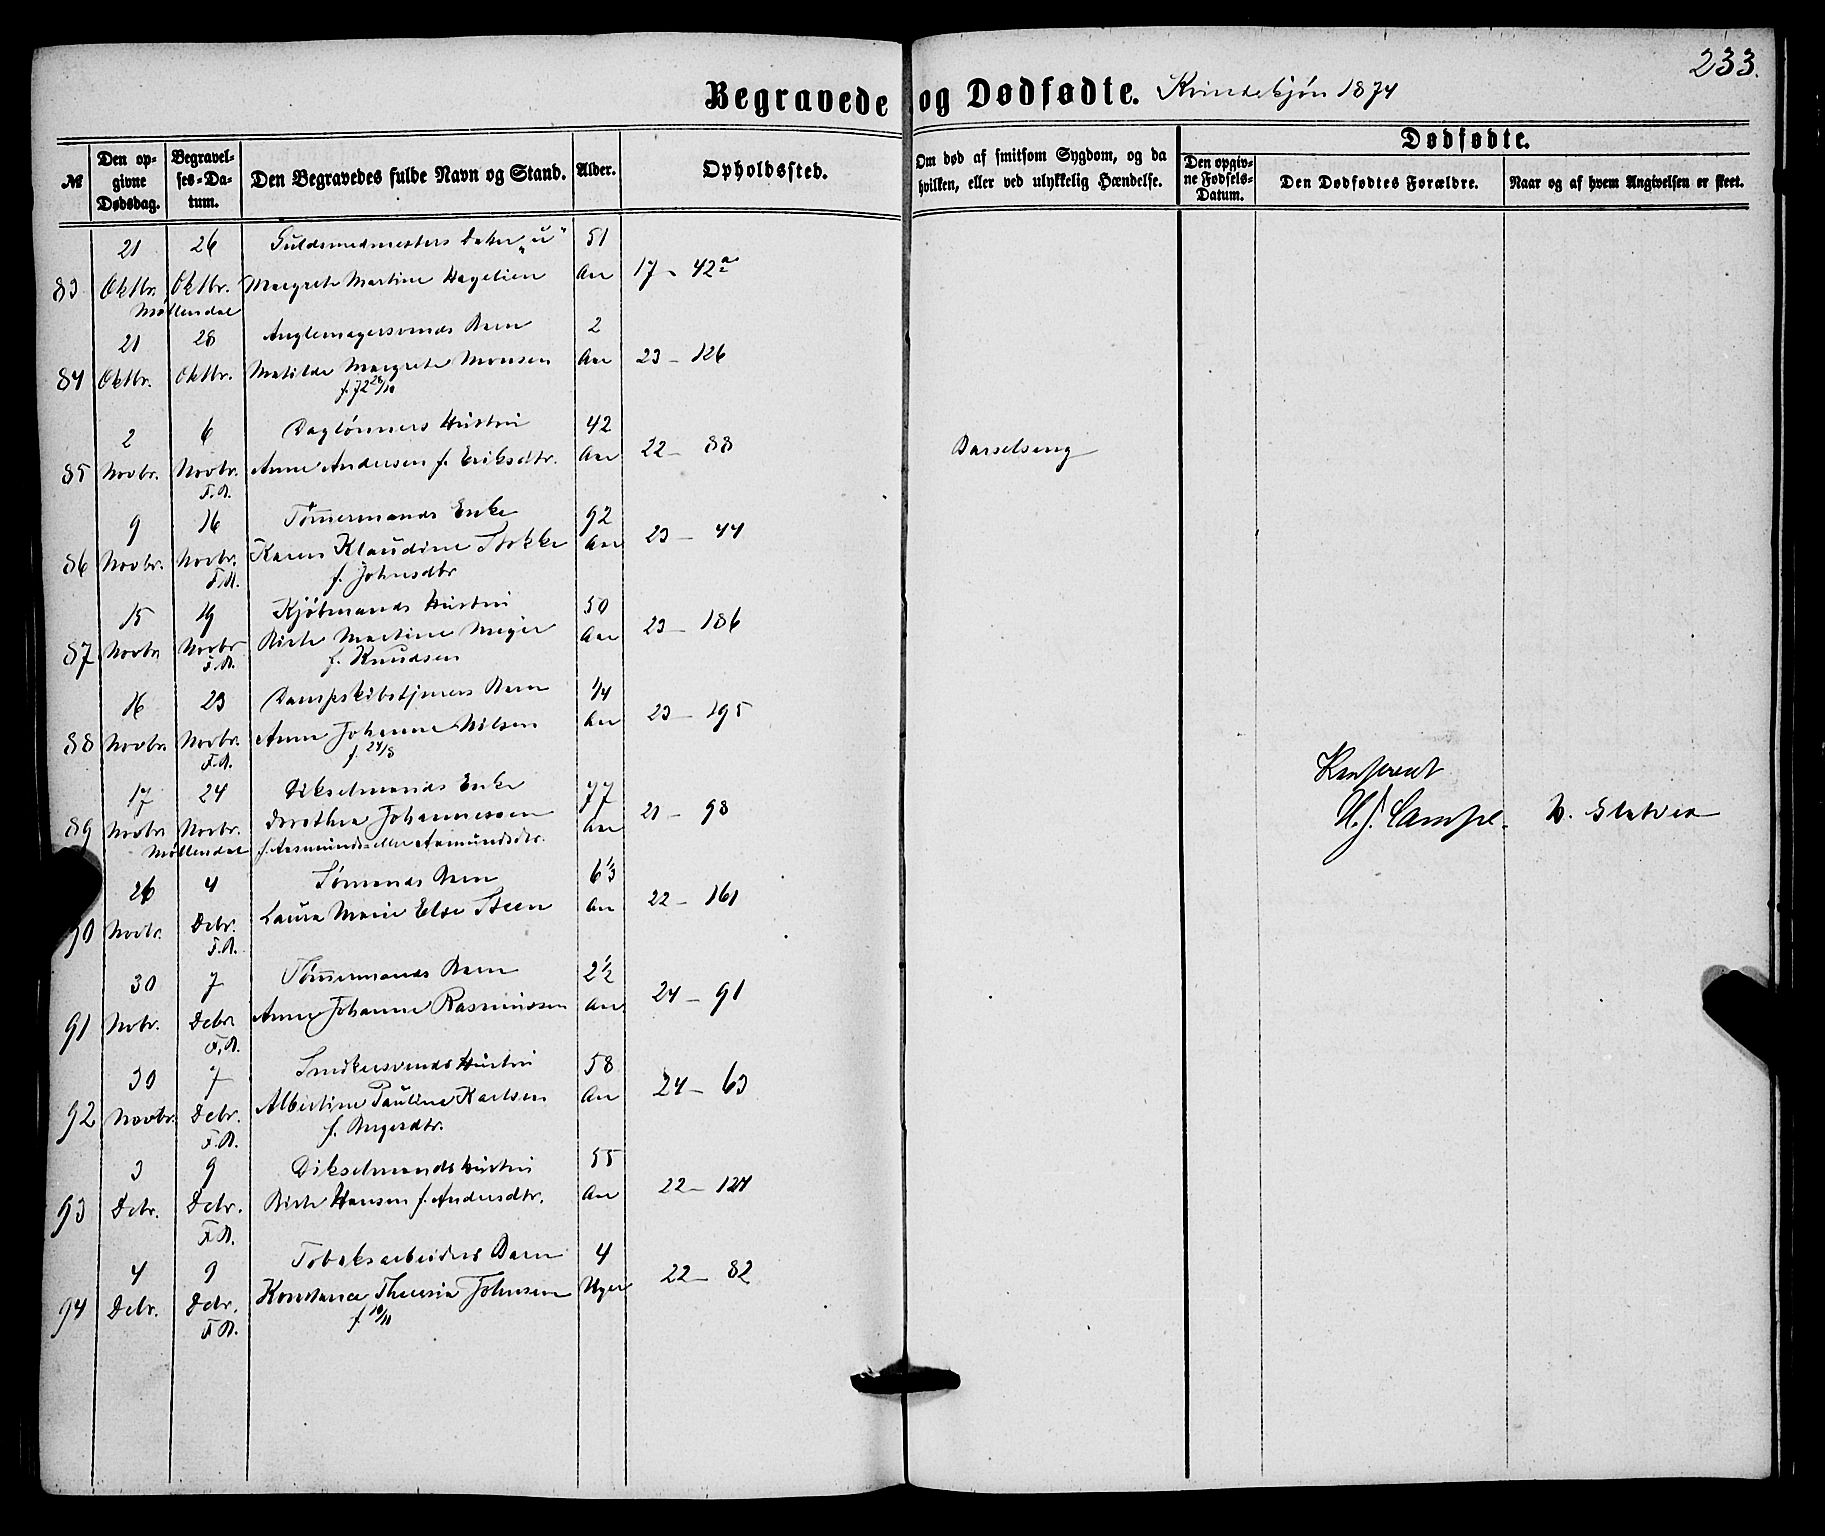 233.
Begravede og Dødfødte. Kvindekjøn 1874
№
Den opgivne Dødsdag.
Begravelses-Datum.
Den Begravedes fulde Navn og Stand.
Alder.
Opholdssted.
Om død af smitsom Sygdom, og da hvilken, eller ved ulykkelig Hændelse.
Dødfødte.
Den opgivne Fødsels-Datum.
Den Dødfødtes Forældre.
Naar og af hvem Angivelsen er skeet.
21 26 Guldsmedmesters Datter "u" 51
83 Oktbr. Oktbr. Margrete Martine Hagelien Aar 17 - 42a
Møllendal
21 28 Barn 2
84 Oktbr. Oktbr. Matilde Margrete Monsen Aar 23 - 126
f. 72 28/10
2 6 Daglønners Hustru 42
85 Novbr. Novbr. Anne Andersen f. Eriksdtr. Aar 22 - 88 Barselseng
F.A.
9 16 Tømermands Enke 92
86 Novbr. Novbr. Karen Klaudine Stokke Aar 23 - 44
F.A. f. Johnsdtr
15 19 Kjøbmands Hustru 50
87 Novbr. Novbr Birte Martine Meyer Aar 23 - 186
F.A. f. Knudsen
16 23 Dampskibstjeners Barn 1/4
88 Novbr. Novbr. Anne Johanne Nilsen Aar 23 - 195
F.A. f. 24/8
17 24 Dikselmands Enke 77
89 Novbr. Novbr. Dorothea Johannessen Aar 21 - 98
Møllendal f. Aasmunds eller Asmundsdtr.
Konferert
H. J. Lampe. v. Statver
26 4 Sømands Barn 6 1/3
90 Novbr. Debr. Laura Marie Else Steen Aar 22 - 161
F.A.
30 7 Tømermands Barn 2 1/2
91 Nobr. Debr. Anne Johanne Rasmussen Aar 24 - 91
F.A.
30 7 Snedkersvends Hustru 58
92 Novbr. Debr. Albertine Pauline Karlsen Aar 24 - 63
F.A. f. Birgersdtr.
3 9 Dikselmands Hustru 55
93 Debr. Debr. Birte Hansen f. Andersdtr. Aar 22 - 127
F.A.
4 9 Tobaksarbeiders Barn 4
94 Debr. Debr. Konstance Theresia Johnsen Uger 22 - 82
F.A. f. 10/11